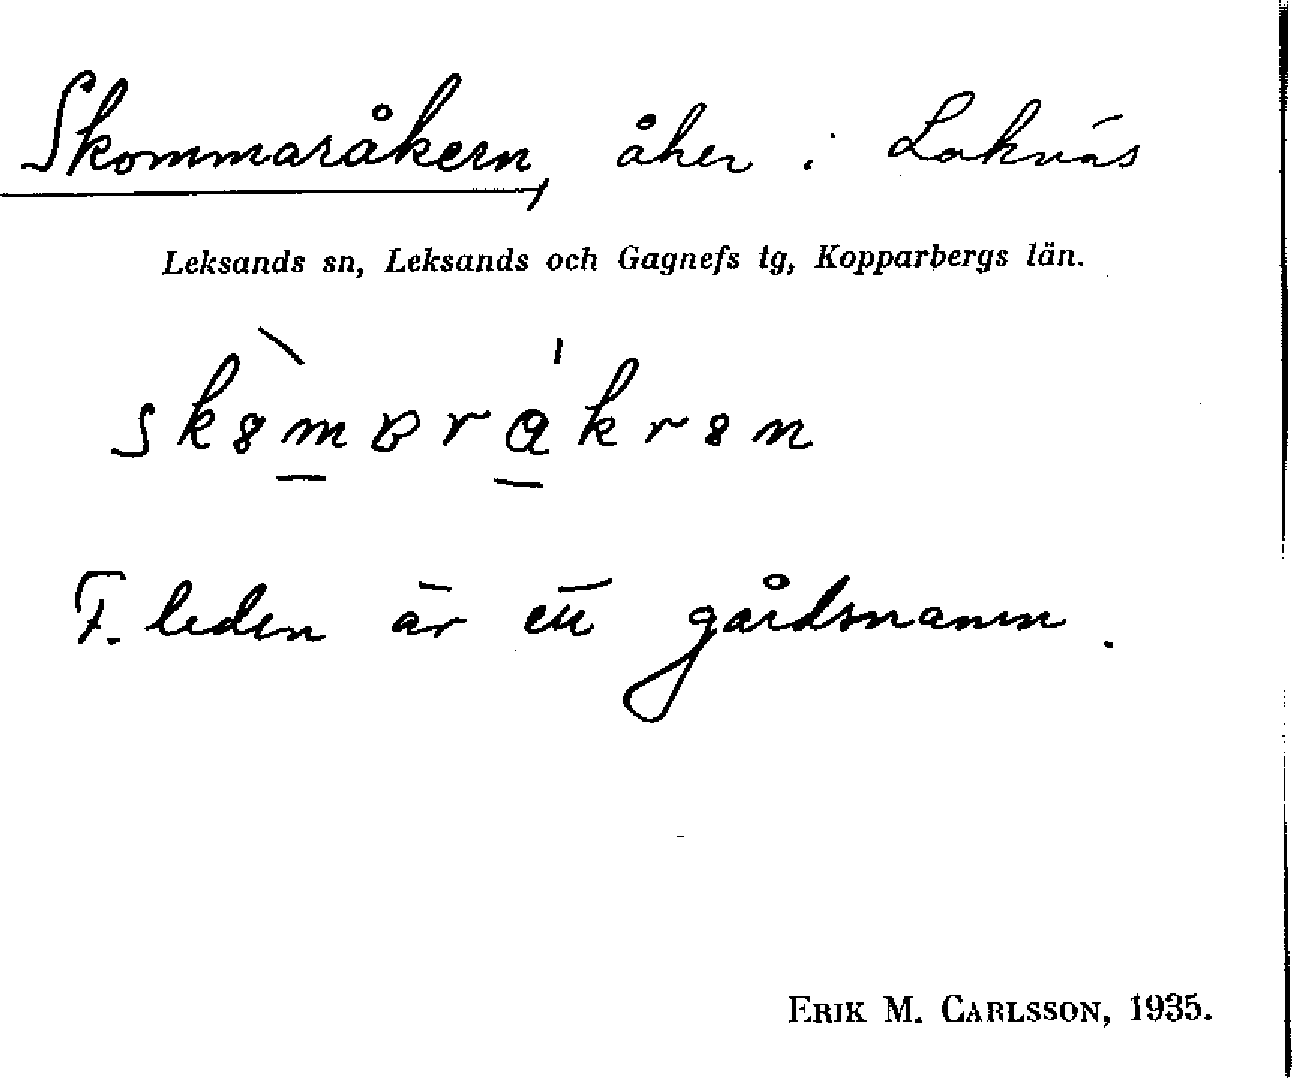 Skommaråkern, åker i Laknäs
Leksands sn, Leksands och Gagnefs tg, Kopparbergs län.
F. leden är ett gårdsnamn.
ERIK M. CARLSSON, 1935.